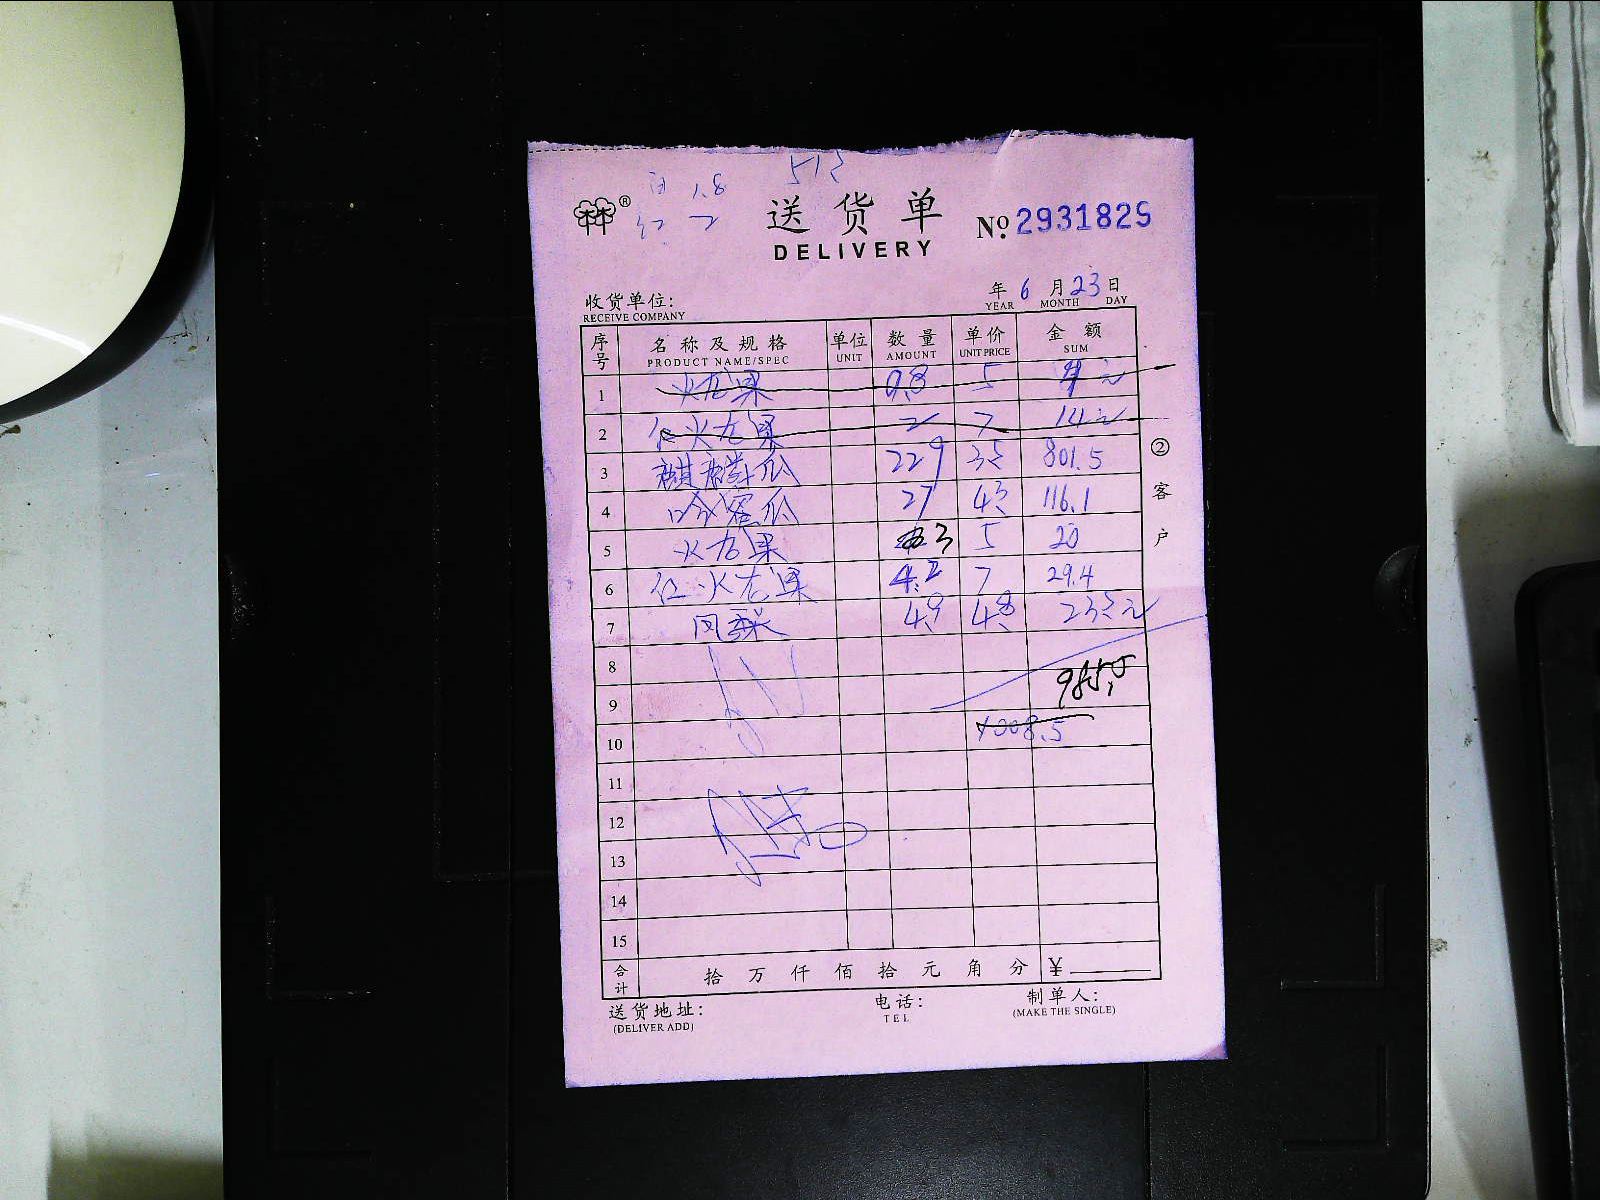 512
白 1.8
红 2
送货单
DELIVERY
№ 2931829
收货单位:
RECEIVE COMPANY
年 6 月 23 日
YEAR MONTH DAY
序号 名称及规格 单位 数量 单价 金额
PRODUCT NAME/SPEC UNIT AMOUNT UNIT PRICE SUM
1 火龙果 0.8 5 4元
2 红火龙果 2 7 14元
3 麒麟瓜 229 35 801.5
4 哈密瓜 27 43 116.1
5 火龙果 3 5 20
6 红火龙果 4.2 7 29.4
7 凤梨 4.9 4.8 235元
8
9 985.5
10 1008.5
11
12
13
14
15
合计 拾 万 仟 佰 拾 元 角 分 ¥
② 客户
送货地址: 电话: 制单人:
(DELIVER ADD) TEL (MAKE THE SINGLE)